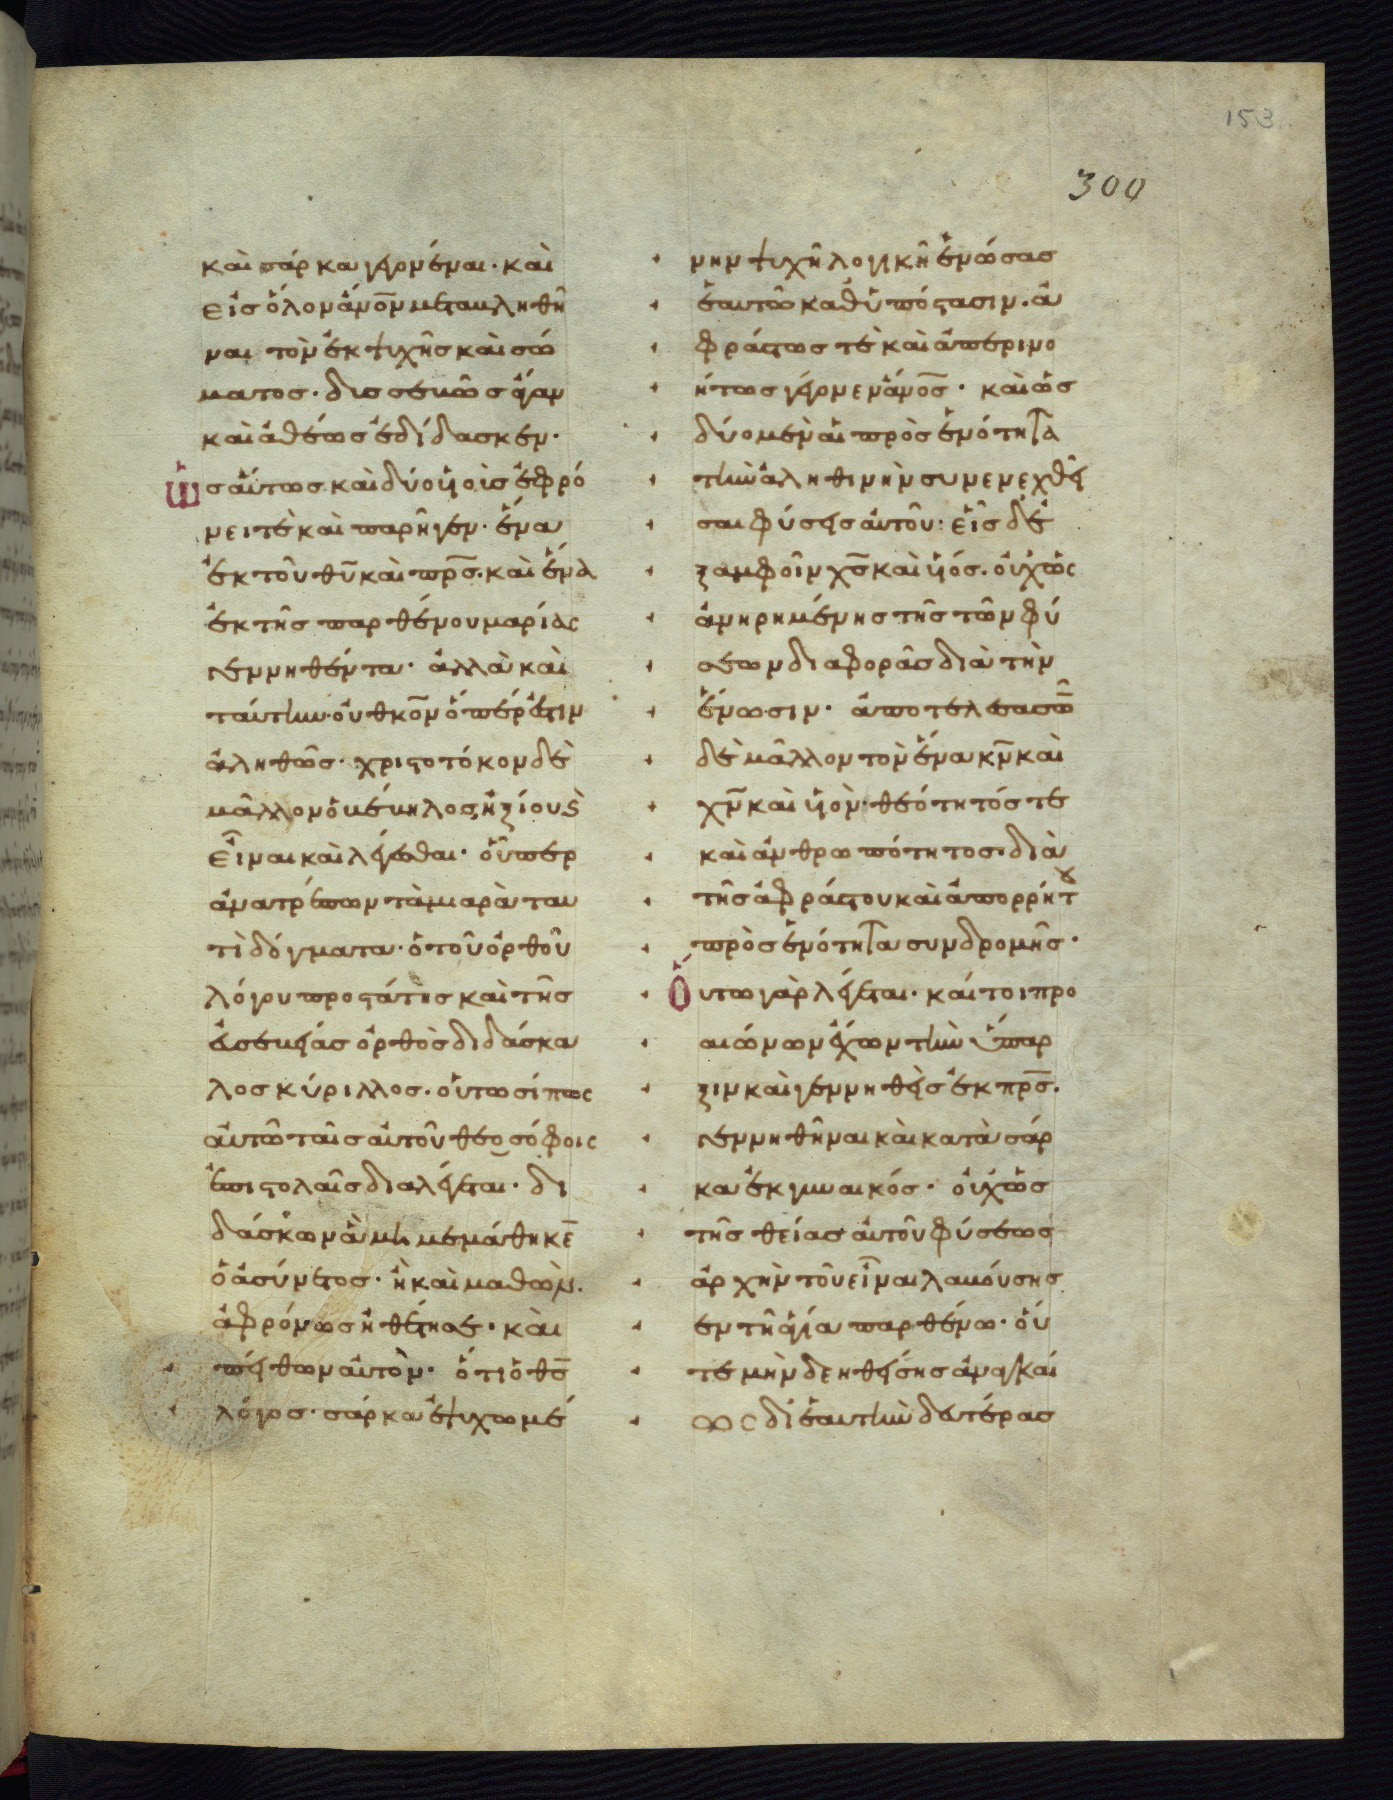 153
300
καὶ σάρκα γενέναι· καὶ
εἰς ὅλον ἄνον μεταβληθῆ
ναι τὸν ἐκ ψυχῆς καὶ σώ
ματος· δυσσεβῶς ἄγαν
καὶ ἀθέως ἐδίδασκεν·
Ὡσαύτως καὶ δύο υἱοὺς ἐφρό
νει τὲ καὶ παρῆγεν· ἕνα
ἐκ τοῦ θυ καὶ πρς. καὶ ἕνα
ἐκ τῆς παρθένου μαρίας
γεννηθέντα· ἀλλὰ καὶ
ταύτην· οὐ θκον ὅπέρ ἐστιν
ἀληθῶς· χριστοτόκον δὲ
μᾶλλον ὁ βέβηλος ἠξίου
εἶναι καὶ λέγεσθαι· οὗπερ
ἀνατρέπων τὰ μιαρὰ ταυ
τὶ δόγματα· ὁ τοῦ ὀρθοῦ
λόγου προστάτης καὶ τῆς
εὐσεβείας ὀρθὸς διδάσκα
λος κύριλλος· οὑτωσί πως
αὐτῶ ταῖς αὐτοῦ θεοσόφοις
ἐπιστολαῖς διαλέγεται· δι
δάσκων ἃ μὴ μεμάθηκε
ὁ ἀσύνετος· ἢ καὶ μαθὼν.
ἀφρόνως ἠθέτησε· καὶ
πείθων αὐτὸν· ὅτι ὁ θς
λόγος· σάρκα ἐψυχωμέ
νην ψυχῆ λογικῆ ἑνώσας
ἑαυτῶ καθ' ὑπόστασιν· ἀ
φράστως τὲ καὶ ἀπερινο
ήτως γέγονεν ἄνος· καὶ ὡς
δύο μὲν αἱ πρὸς ἑνότητα
τὴν ἀληθινὴν συνενεχθεῖ
σαι φύσεις αὐτοῦ: εἷς δὲ ἐ
ξ ἀμφοῖν χς καὶ υἱός. οὐχ ὡς
ἀνηρημένης τῆς τῶν φύ
σεων διαφορᾶς διὰ τὴν
ἕνωσιν· ἀποτελεσασῶ
δὲ μᾶλλον τὸν ἕνα κν καὶ
χν καὶ υἱὸν· θεότητός τε
καὶ ἀνθρωπότητος. διὰ
τῆς ἀφράστου καὶ ἀπορρήτου
πρὸς ἑνότητα συνδρομῆς·
Οὕτω γὰρ λέγεται· καίτοι προ
αιώνων ἔχων τὴν ὕπαρ
ξιν καὶ γεννηθεὶς ἐκ πρς.
γεννηθῆναι καὶ κατὰ σάρ
κα ἐκ γυναικός· οὐχ ὡς
τῆς θείας αὐτοῦ φύσεως
ἀρχὴν τοῦ εἶναι λαβούσης
ἐν τῆ ἁγία παρθένω· οὔ
τε μὴν δεηθείσης ἀναγκαί
ως δι' ἑαυτὴν δευτέρας